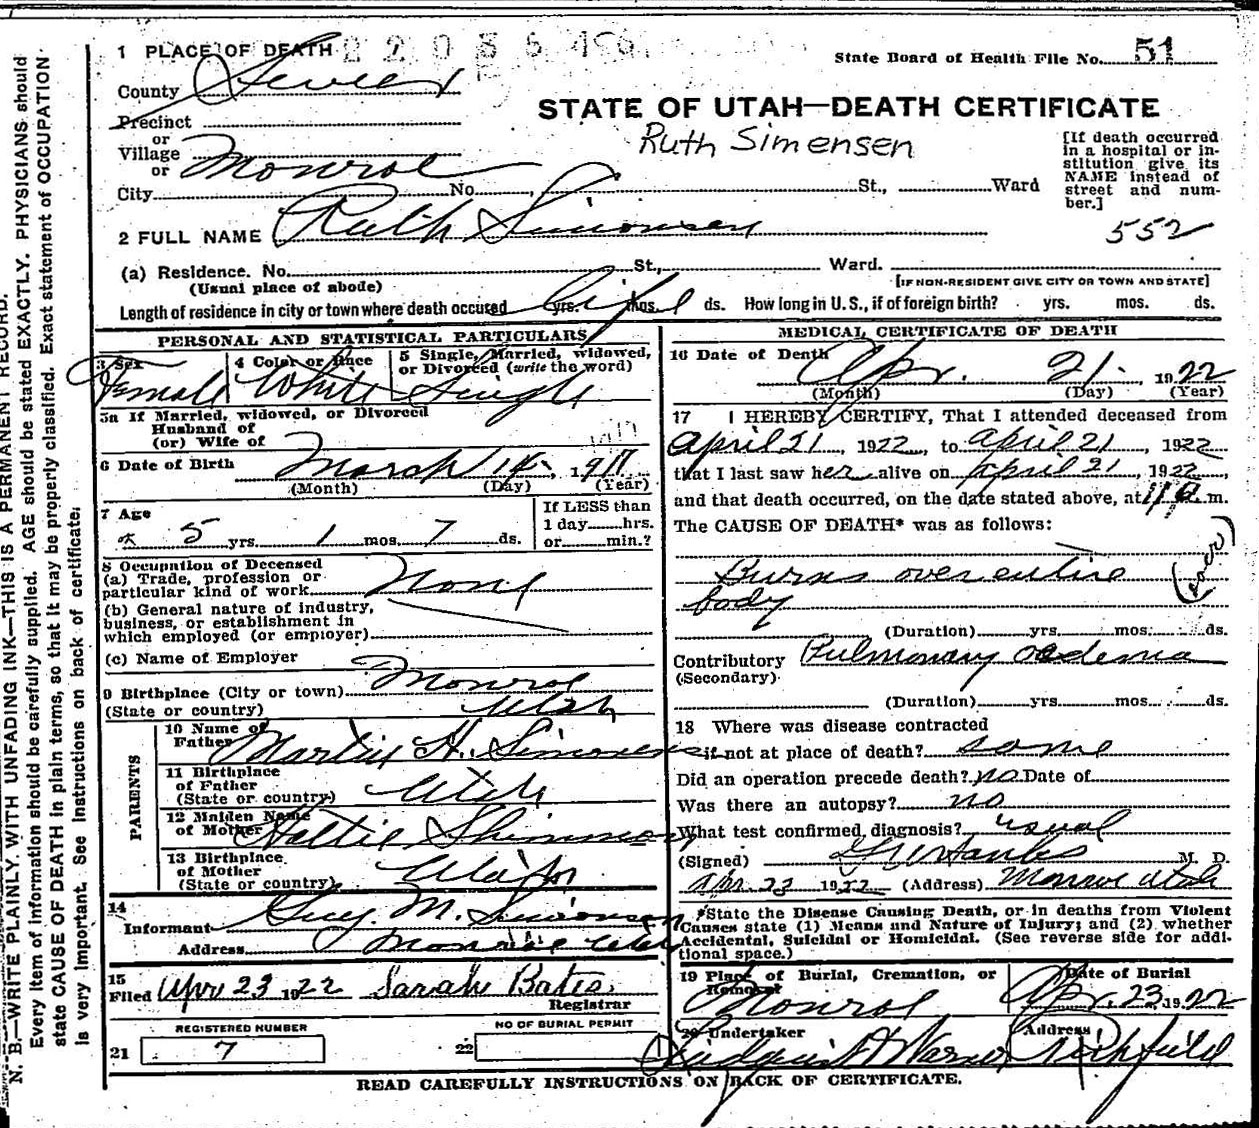 1 PLACE OF DEATH
State Board of Health File No. 51
County Sevier
STATE OF UTAH—DEATH CERTIFICATE
Precinct
or
Village
or
Monroe
Ruth Simensen
[If death occurred in a hospital or institution give its NAME instead of street and number.]
City No. St., Ward
2 FULL NAME Ruth Simonsen
552
(a) Residence. No. St., Ward.
(Usual place of abode)
[IF NON-RESIDENT GIVE CITY OR TOWN AND STATE]
Length of residence in city or town where death occured yrs. mos. ds. How long in U.S., if of foreign birth? yrs. mos. ds.
Life
PERSONAL AND STATISTICAL PARTICULARS
3 Sex
Female
4 Color or Race
White
5 Single, Married, widowed, or Divorced (write the word)
Single
5a If Married, widowed, or Divorced
Husband of
(or) Wife of
6 Date of Birth March 14, 1917
(Month) (Day) (Year)
7 Age
5 yrs. 1 mos. 7 ds.
If LESS than
1 day hrs.
or min.?
8 Occupation of Deceased
(a) Trade, profession or
particular kind of work None
(b) General nature of industry,
business, or establishment in
which employed (or employer)
(c) Name of Employer
9 Birthplace (City or town) Monroe
(State or country) Utah
PARENTS
10 Name of
Father Martin H. Simonsen
11 Birthplace
of Father
(State or country) Utah
12 Maiden Name
of Mother Hattie
13 Birthplace
of Mother
(State or country) Utah
14
Informant Guy M. Simonsen
Address Monroe Utah
15
Filed Apr 23 1922 Sarah Bates
Registrar
REGISTERED NUMBER
21 7
NO OF BURIAL PERMIT
22
MEDICAL CERTIFICATE OF DEATH
16 Date of Death
Apr. 21. 1922
(Month) (Day) (Year)
17 I HEREBY CERTIFY, That I attended deceased from
April 21, 1922, to April 21, 1922
that I last saw her alive on April 21, 1922,
and that death occurred, on the date stated above, at 11 a m.
The CAUSE OF DEATH* was as follows:
Burns over entire
body
(over)
(Duration) yrs. mos. ds.
Contributory Pulmonary oedema
(Secondary)
(Duration) yrs. mos. ds.
18 Where was disease contracted
if not at place of death? same
Did an operation precede death? no Date of
Was there an autopsy? no
What test confirmed diagnosis? usual
(Signed) M. D.
Apr. 23 1922 (Address) Monroe Utah
*State the Disease Causing Death, or in deaths from Violent
Causes state (1) Means and Nature of Injury; and (2) whether
Accidental, Suicidal or Homicidal. (See reverse side for additional space.)
19 Place of Burial, Cremation, or
Removal
Monroe
Date of Burial
Apr. 23, 1922
20 Undertaker
Address
Richfield
READ CAREFULLY INSTRUCTIONS ON BACK OF CERTIFICATE.
N. B.—WRITE PLAINLY, WITH UNFADING INK—THIS IS A PERMANENT RECORD.
Every item of information should be carefully supplied. AGE should be stated EXACTLY. PHYSICIANS should
state CAUSE OF DEATH in plain terms, so that it may be properly classified. Exact statement of OCCUPATION
is very important. See Instructions on back of certificate.